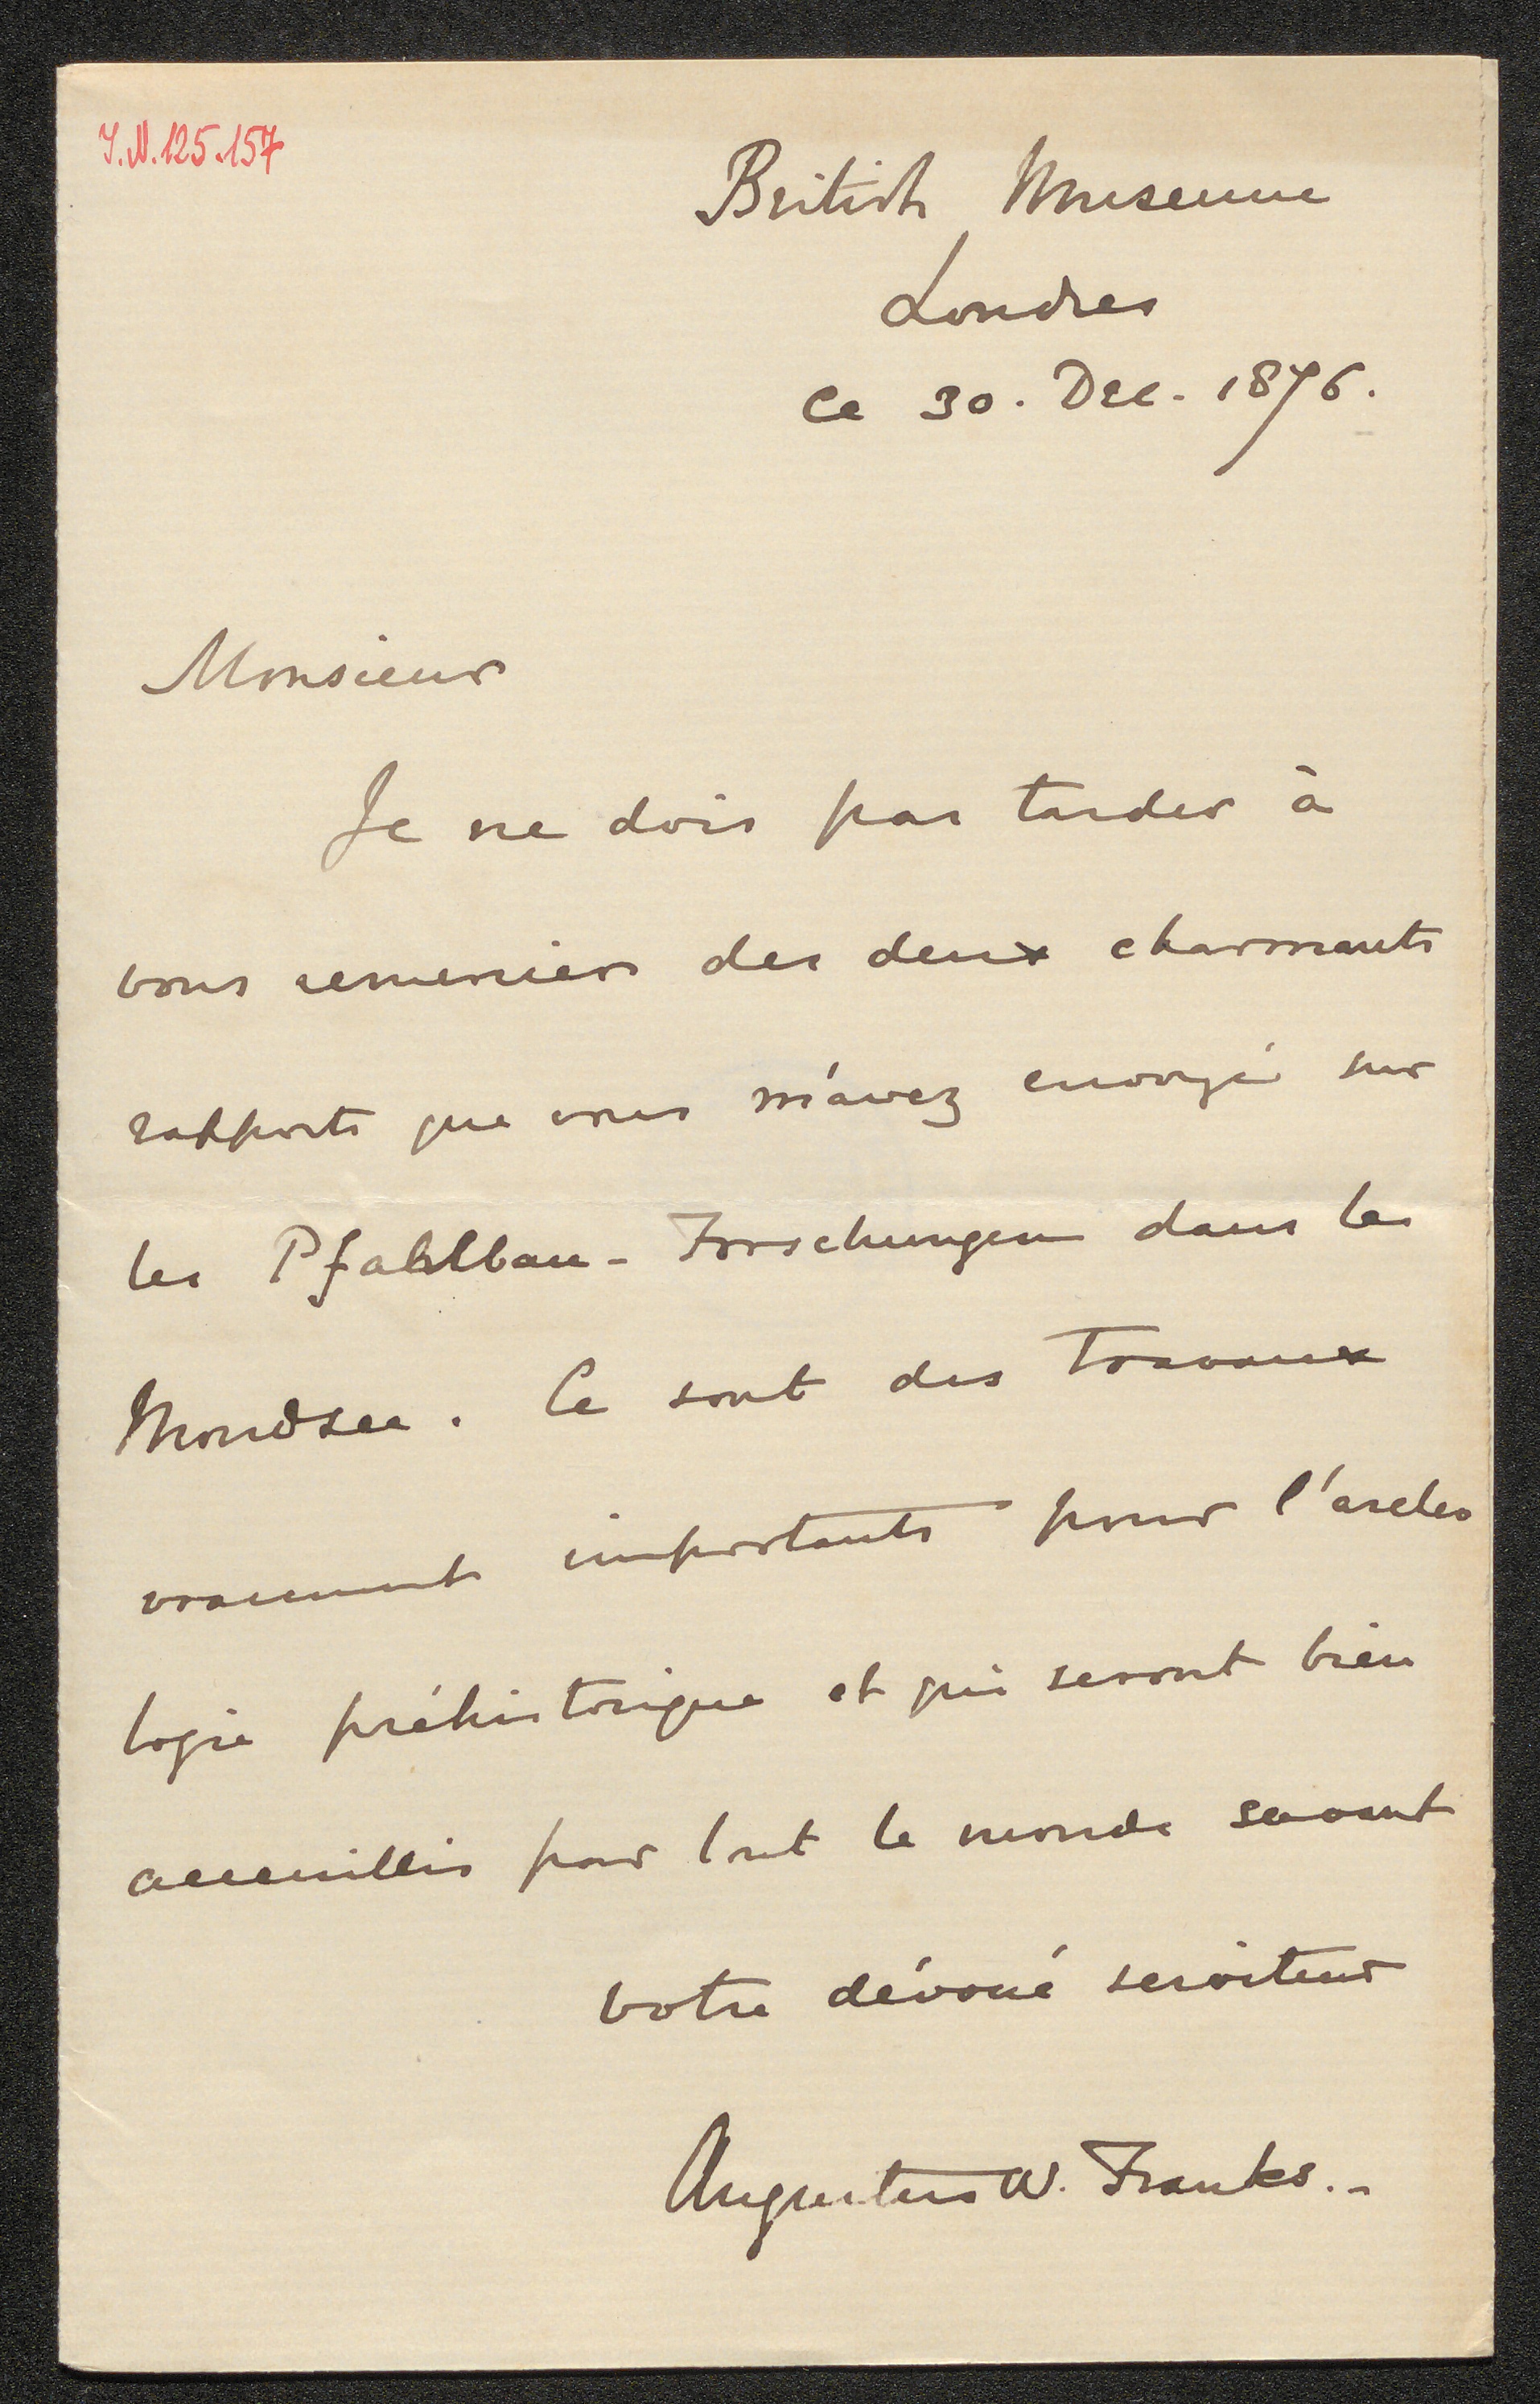 I.N. 125.157
British Museum
Londres
ce 30. Dec. 1876.
Monsieur
Je ne dois pas tarder à
vous remercier des deux charmants
rapports que vous m'avez envoyé sur
les Pfahlbau-Forschungen dans le
Mondsee. Ce sont des travaux
vraiment importants pour l'archeo
logie préhistorique et qui seront bien
accueillis par tout le monde savant
votre dévoué serviteur
Augustus W. Franks.-